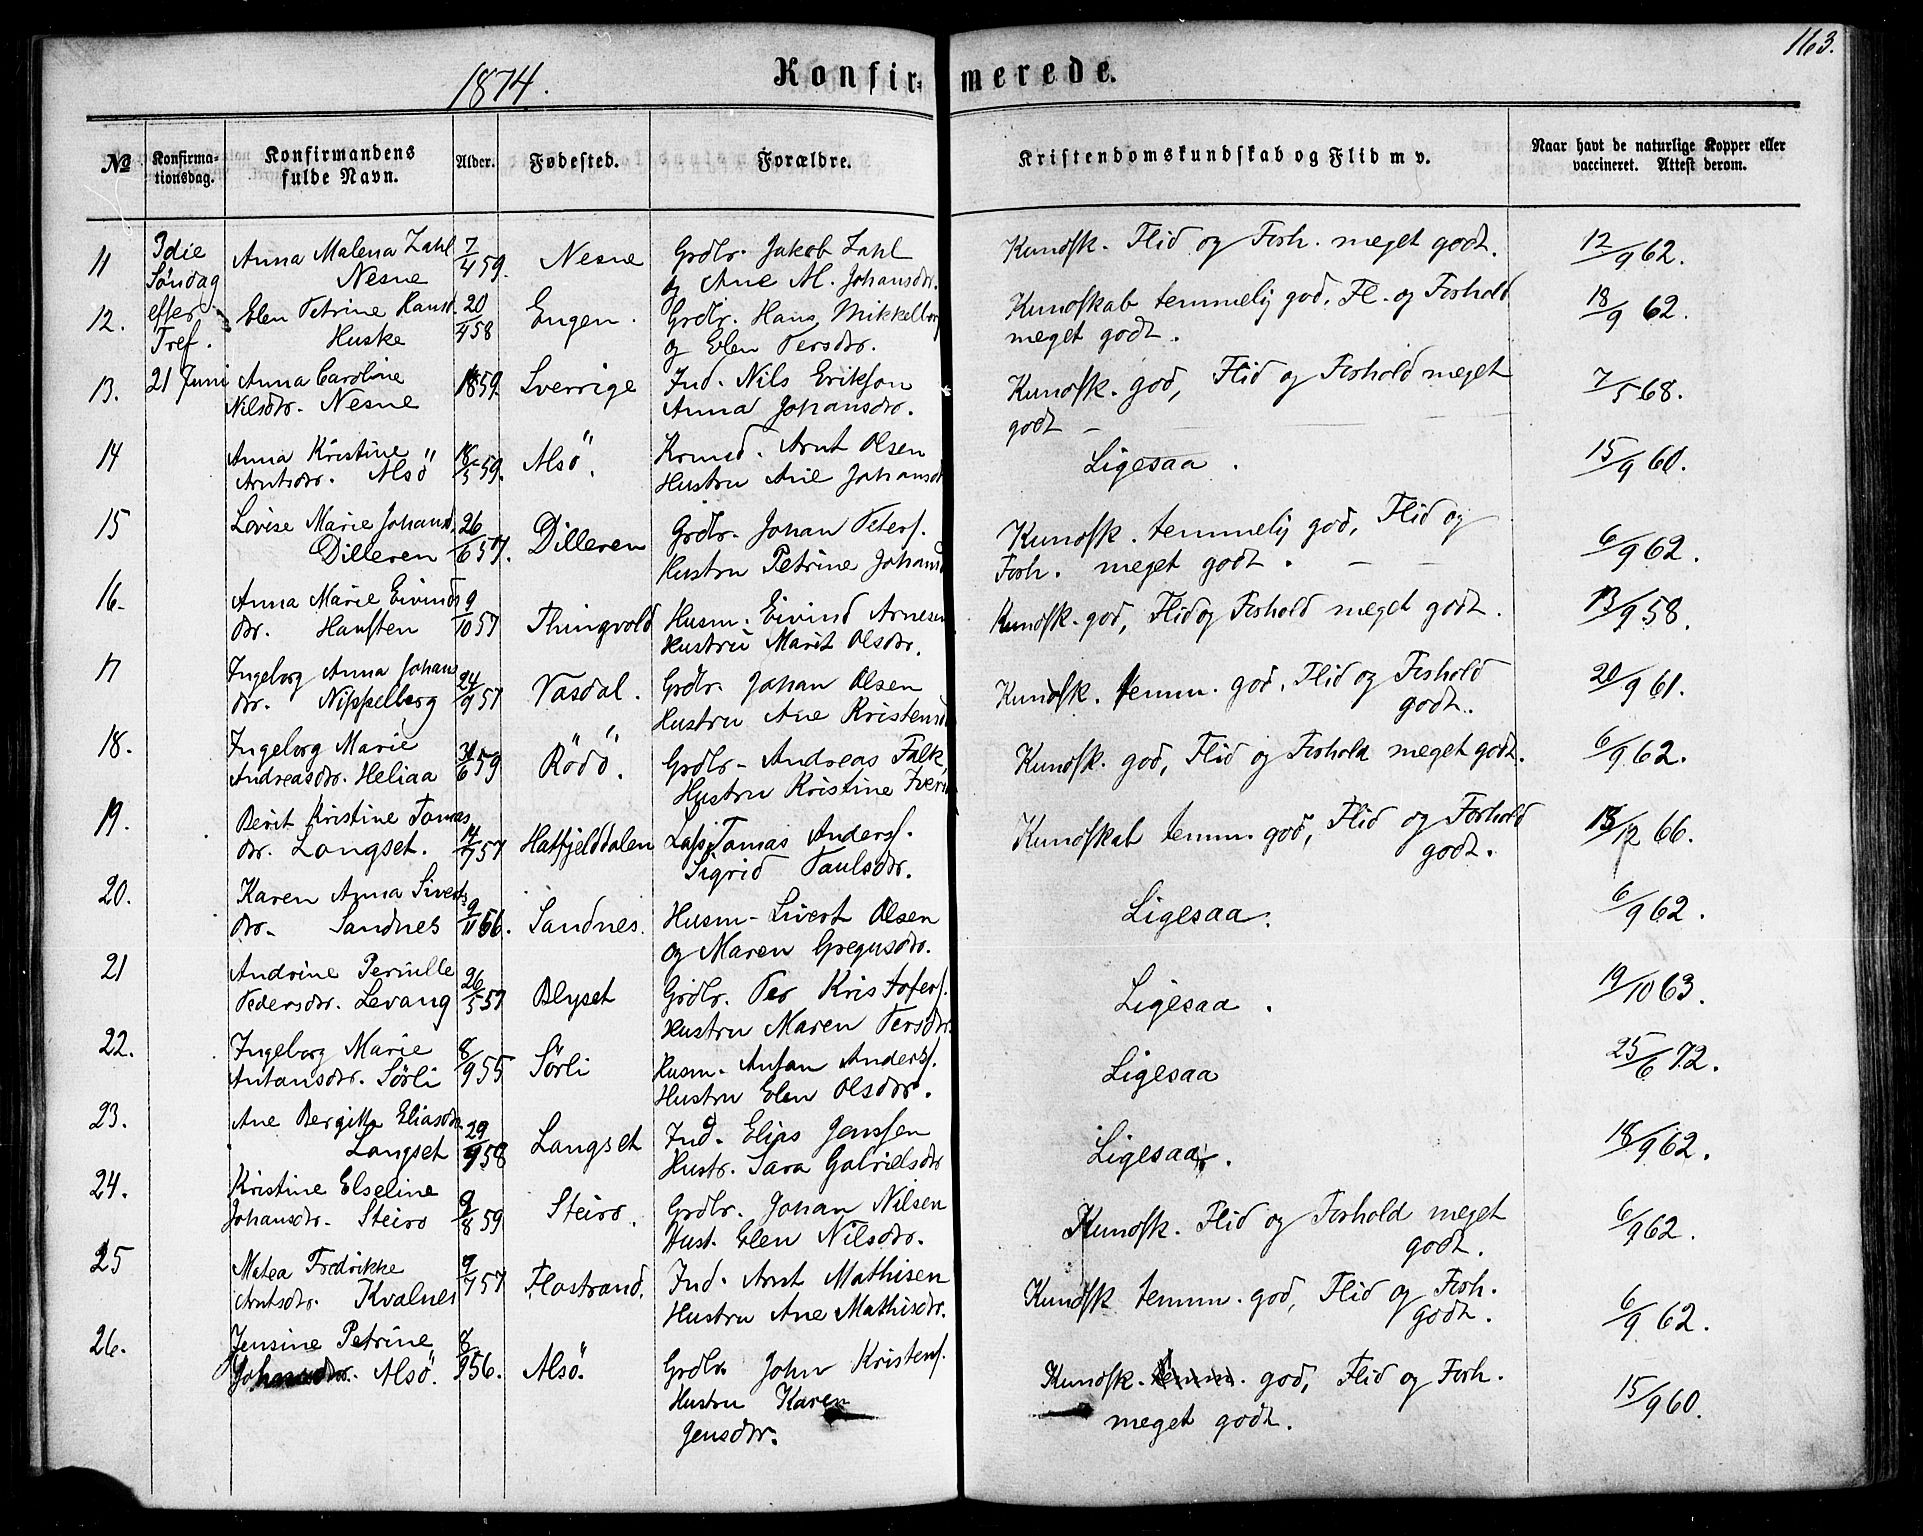 163.
1874.
Konfirmerede.
№ Konfirmationsdag. Konfirmandens fulde Navn. Alder. Fødested. Forældre. Kristendomskundskab og Flid m v. Naar havt de naturlige Kopper eller vaccineret. Attest derom.
3die Søndag efter Tref. 21 Juni
11 Anna Malena Zahl Nesne 7/4 59. Nesne Grdbr. Jakob Zahl og Ane M. Johansdr. Kundsk. Flid og Forh. meget godt. 12/9 62.
12. Elen Petrine Hansd. Huske 20/4 58 Engen. Grdbr. Hans Mikkelborg og Elen Persdr. Kundskab temmelig god, Fl. og Forhold meget godt. 18/9 62.
13. Anna Caroline Nilsdr. Nesne 1859. Sverrige Ind. Nils Erikson Anna Johansdr. Kundsk. god, Flid og Forhold meget godt 7/5 68.
14 Anna Kristine Arntsdr. Alsö 18/5 59. Alsö. Arnt Olsen Hustru Ane Johansd Ligesaa. 15/9 60.
15 Lovise Marie Johansd. Dilleren 26/6 57. Dilleren Grdbr. Johan Peters. Hustru Petrine Johansd Kundsk. temmelig god, Flid og Forh. meget godt. 6/9 62.
16. Anna Marie Eivinds dr. Hansten 9/10 57 Thingvold Husm. Eivind Arnesen Hustru Marit Olsdr. Kundsk. god, Flid og Forhold meget godt. 13/9 58.
17 Ingeborg Anna Johans dr. Nippelberg 24/9 57 Vasdal. Grdbr. Johan Olsen Hustru Ane Kristensd Kundsk. temm. god, Flid og Forhold godt. 20/9 61.
18. Ingeborg Marie Andreasdr. Heliaa 30/6 59 Rödö. Grdbr. Andreas Falk, Hustru Kristine Iver Kundsk. god, Flid og Forhold meget godt. 6/9 62.
19. Berit Kristine Tomas dr. Langset. 14/7 57 Hatfjelddalen Lap Tomas Anders. Sigrid Paulsdr. Kundskab temm. god, Flid og Forhold godt. 13/12 66.
20. Karen Anna Siverts dr. Sandnes 9/11 56. Sandnes. Husm. Sivert Olsen og Maren Gregusdr. Ligesaa. 6/9 62.
21 Andrine Pernille Pedersdr. Levang 26/5 57 Blyset Grdbr. Per Kristofers. Hustru Maren Persdr. Ligesaa. 19/10 63.
22. Ingeborg Marie Antansdr. Sörli 8/9 55 Sörli Husm. Antan Anders. Hustru Elen Olsdr. Ligesaa 25/6 72.
23. Ane Bergitta Eliasdr. Langset 29/9 58 Langset Ind. Elias Jenssen Hustr. Sara Gabrielsdr Ligesaa. 18/9 62.
24. Kristine Elseline Johansdr. Steiro 9/8 59 Steiro. Grdbr. Johan Nilsen Hust. Elen Nilsdr. Kundsk. Flid og Forhold meget godt. 6/9 62.
25 Matea Fredrikke Arntsdr. Kvalnes 9/7 57 Flostrand. Ind. Arnt Mathisen Hustru Ane Mathisdr. Kundsk temm. god, Flid og Forh. godt. 6/9 62.
26. Jensine Petrine Johansdr. Alsö. 8/9 56. Alsö. Grdbr John Kristens. Hustru Karen Jensdtr. Kundsk. temm. god, Flid og Forh. meget godt. 15/9 60.